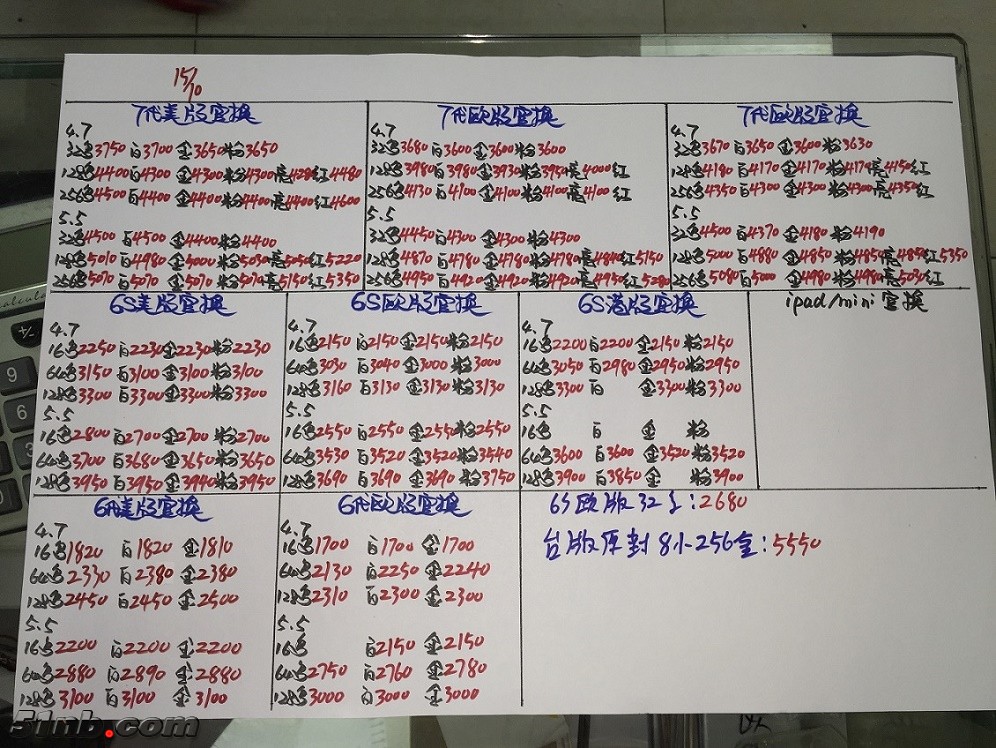 15/10
7代美版官换
4.7
32黑3750 白3700 金3650 粉3650
128黑4400 白4300 金4300 粉4300 亮4280 红4480
256黑4500 白4400 金4400 粉4400 亮4400 红4600
5.5
32黑4500 白4500 金4400 粉4400
128黑5010 白4980 金5000 粉5030 亮5050 红5220
256黑5070 白5070 金5070 粉5070 亮5150 红5350
7代欧版官换
4.7
32黑3680 白3600 金3600 粉3600
128黑3980 白3980 金3930 粉3950 亮4000 红
256黑4130 白4100 金4100 粉4100 亮4100 红
5.5
32黑4450 白4300 金4300 粉4300
128黑4870 白4780 金4780 粉4780 亮4840 红5150
256黑4950 白4920 金4920 粉4920 亮4950 红5280
7代欧版官换
4.7
32黑3670 白3650 金3600 粉3630
128黑4180 白4170 金4170 粉4170 亮4150 红
256黑4350 白4300 金4300 粉4300 亮4350 红
5.5
32黑4500 白4370 金4180 粉4190
128黑5000 白4880 金4850 粉4850 亮4850 红5350
256黑5080 白5000 金4980 粉4980 亮5030 红
6S美版官换
4.7
16黑2250 白2230 金2230 粉2230
64黑3150 白3100 金3100 粉3100
128黑3300 白3300 金3300 粉3300
5.5
16黑2800 白2700 金2700 粉2700
64黑3700 白3680 金3650 粉3650
128黑3950 白3950 金3940 粉3950
6S欧版官换
4.7
16黑2150 白2150 金2150 粉2150
64黑3030 白3040 金3000 粉3000
128黑3160 白3130 金3130 粉3130
5.5
16黑2550 白2550 金2550 粉2550
64黑3530 白3520 金3520 粉3540
128黑3690 白3690 金3690 粉3750
6S港版官换
4.7
16黑2200 白2200 金2150 粉2150
64黑3050 白2980 金2950 粉2950
128黑3300 白 金3300 粉3300
5.5
16黑 白 金 粉
64黑3600 白3600 金3520 粉3520
128黑3900 白3850 金 粉3900
ipad/mini 官换
6代美版官换
4.7
16黑1820 白1820 金1810
64黑2330 白2380 金2380
128黑2450 白2450 金2500
5.5
16黑2200 白2200 金2200
64黑2880 白2890 金2880
128黑3100 白3100 金3100
6代欧版官换
4.7
16黑1700 白1700 金1700
64黑2130 白2250 金2240
128黑2310 白2300 金2300
5.5
16黑 白2150 金2150
64黑2750 白2760 金2780
128黑3000 白3000 金3000
6S欧版32G:2680
台版原封8小256金:5550
9
6
51nb.com